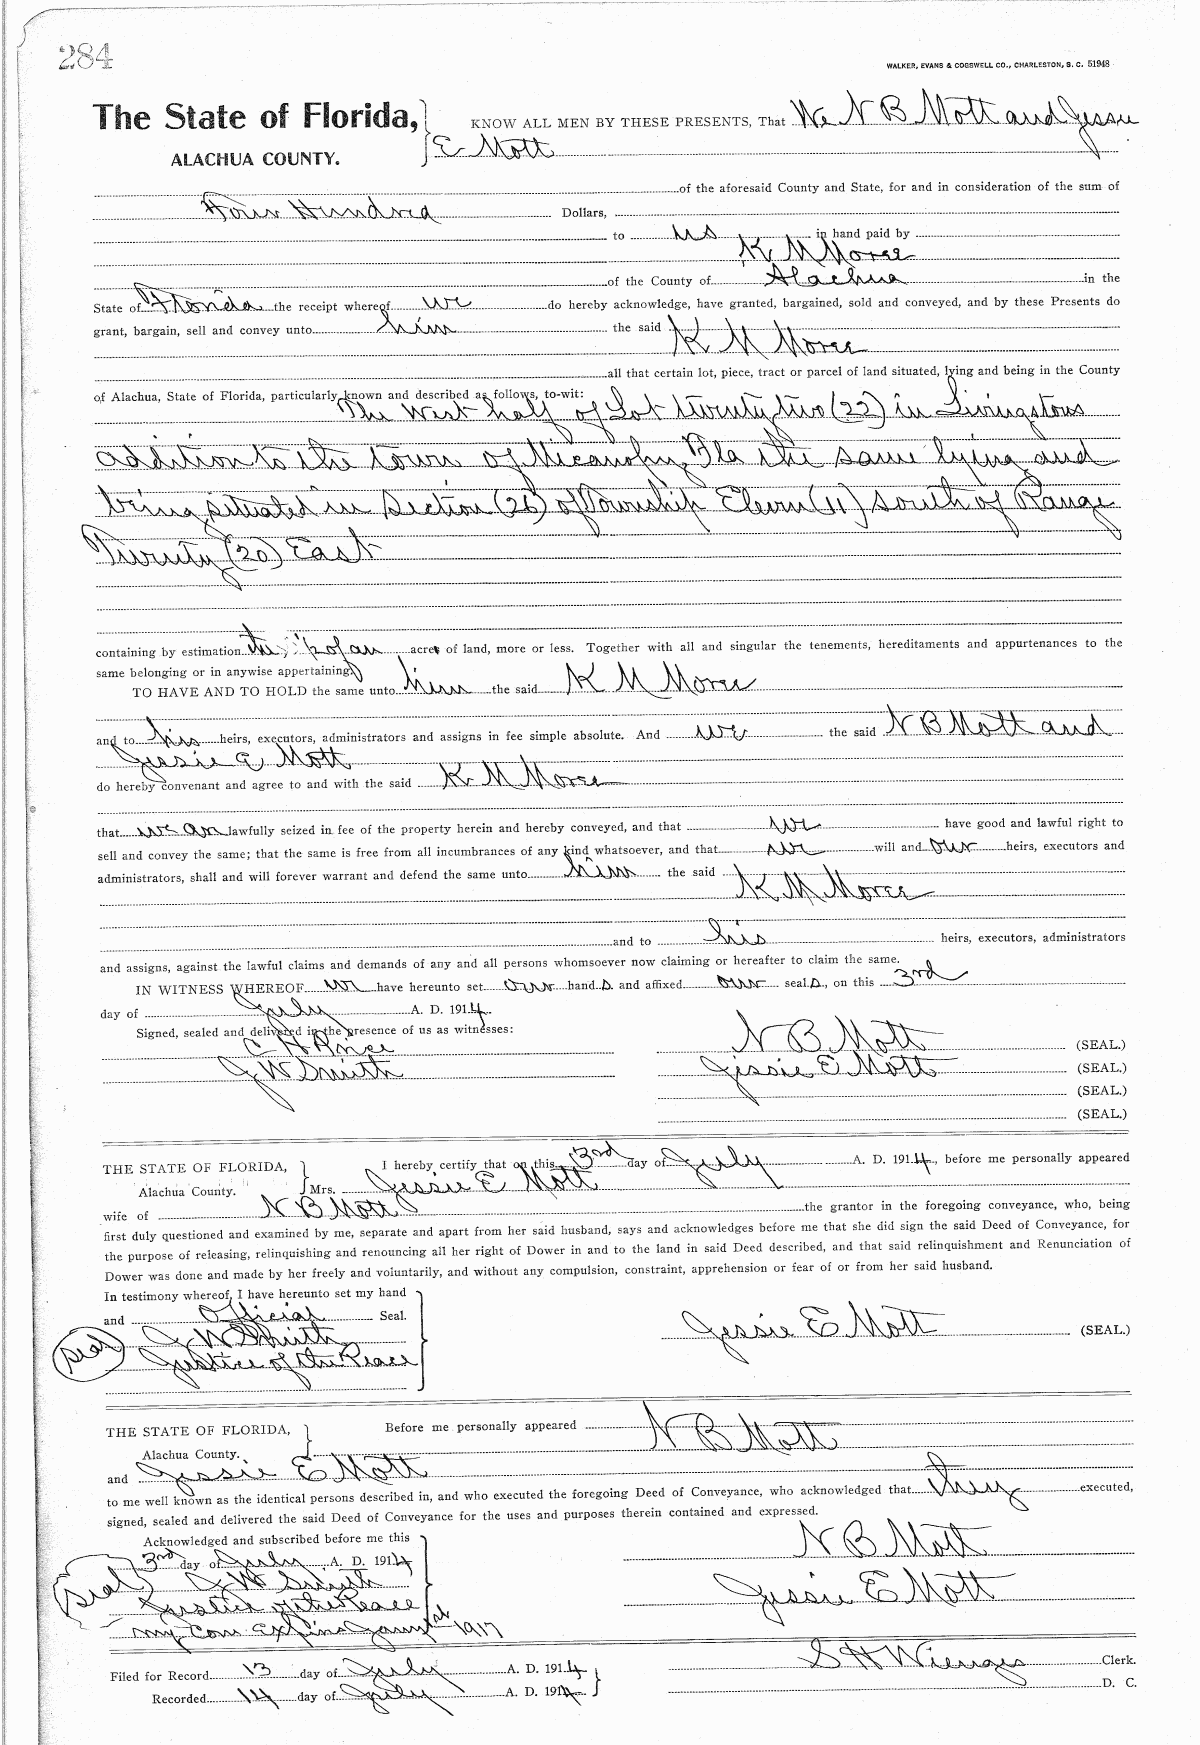 284
WALKER, EVANS & COGSWELL CO., CHARLESTON, S. C. 51948
The State of Florida, KNOW ALL MEN BY THESE PRESENTS, That We N B Mott and Jessie
ALACHUA COUNTY. E Mott
of the aforesaid County and State, for and in consideration of the sum of
Four Hundred Dollars,
to us in hand paid by
K M Moree
of the County of Alachua in the
State of Florida the receipt whereof we do hereby acknowledge, have granted, bargained, sold and conveyed, and by these Presents do
grant, bargain, sell and convey unto him the said K M Moree
all that certain lot, piece, tract or parcel of land situated, lying and being in the County
of Alachua, State of Florida, particularly known and described as follows, to-wit:
The West half of Lot twenty two (22) in Livingstons
addition to the town of Micanopy, Fla the same lying and
being situated in Section (26) of Township Eleven (11) south of Range
Twenty (20) East
containing by estimation of an acre of land, more or less. Together with all and singular the tenements, hereditaments and appurtenances to the
same belonging or in anywise appertaining.
TO HAVE AND TO HOLD the same unto him the said K M Moree
and to his heirs, executors, administrators and assigns in fee simple absolute. And we the said N B Mott and
Jessie E Mott
do hereby convenant and agree to and with the said K M Moree
that we are lawfully seized in fee of the property herein and hereby conveyed, and that we have good and lawful right to
sell and convey the same; that the same is free from all incumbrances of any kind whatsoever, and that we will and our heirs, executors and
administrators, shall and will forever warrant and defend the same unto him the said K M Moree
and to his heirs, executors, administrators
and assigns, against the lawful claims and demands of any and all persons whomsoever now claiming or hereafter to claim the same.
IN WITNESS WHEREOF we have hereunto set our hand s and affixed our seal s, on this 3rd
day of July A. D. 1914.
Signed, sealed and delivered in the presence of us as witnesses:
C H Price N B Mott (SEAL.)
J W Smith Jessie E Mott (SEAL.)
(SEAL.)
(SEAL.)
THE STATE OF FLORIDA, I hereby certify that on this 3rd day of July A. D. 1914, before me personally appeared
Alachua County. Mrs. Jessie E Mott
wife of N B Mott the grantor in the foregoing conveyance, who, being
first duly questioned and examined by me, separate and apart from her said husband, says and acknowledges before me that she did sign the said Deed of Conveyance, for
the purpose of releasing, relinquishing and renouncing all her right of Dower in and to the land in said Deed described, and that said relinquishment and Renunciation of
Dower was done and made by her freely and voluntarily, and without any compulsion, constraint, apprehension or fear of or from her said husband.
In testimony whereof, I have hereunto set my hand
and Official Seal.
J W Smith Jessie E Mott (SEAL.)
(seal) Justice of the Peace
THE STATE OF FLORIDA, Before me personally appeared N B Mott
Alachua County.
and Jessie E Mott
to me well known as the identical persons described in, and who executed the foregoing Deed of Conveyance, who acknowledged that they executed,
signed, sealed and delivered the said Deed of Conveyance for the uses and purposes therein contained and expressed.
Acknowledged and subscribed before me this N B Mott
3rd day of July A. D. 1914
(seal) J W Smith Jessie E Mott
Justice of the Peace
my Com Expires Jany 1st 1917
Filed for Record 13 day of July A. D. 1914 S H Wienges Clerk.
Recorded 14 day of July A. D. 1914 D. C.